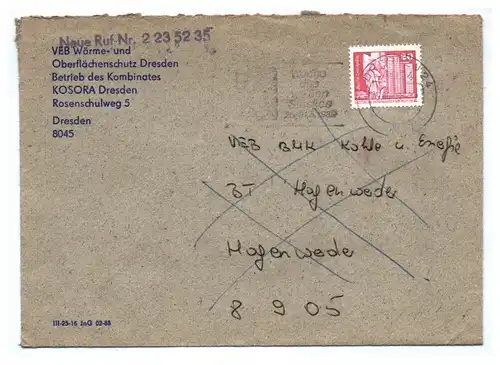 Neue Ruf-Nr. 2 23 52 35
VEB Wärme- und
Oberflächenschutz Dresden
Betrieb des Kombinates
KOSORA Dresden
Rosenschulweg 5
Dresden
8045
Woche
VEB BMK Kohle u. Energie
BT Hagenwerder
Hagenwerder
8905
III-25-16 JnG 02-88